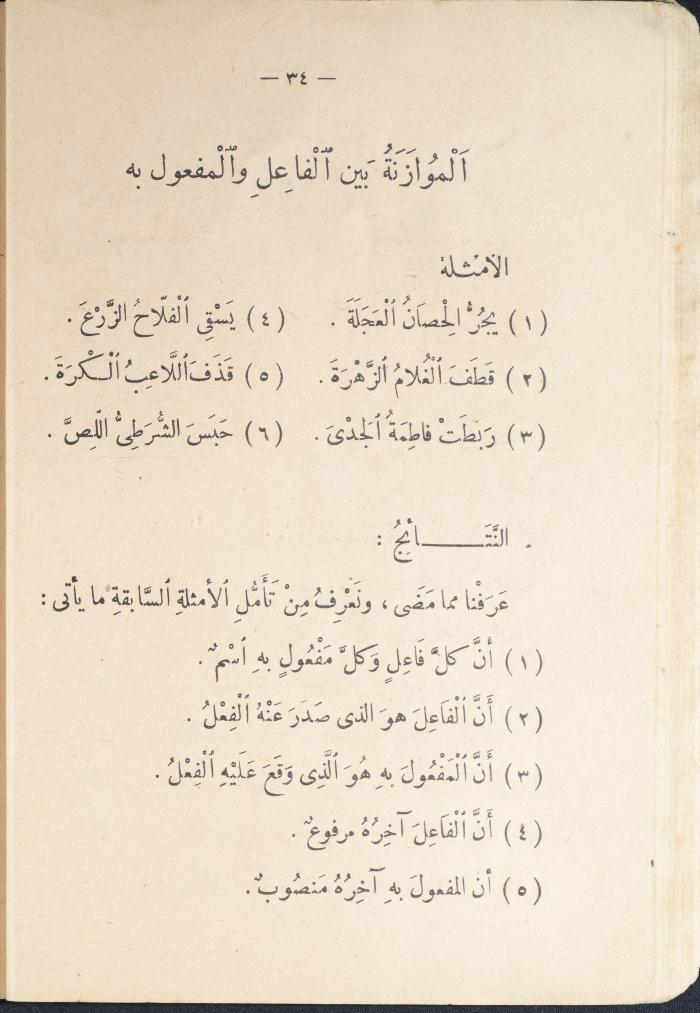 — ٣٤ —
اَلْمُوَازَنَةُ بَين ٱلْفاعِلِ وٱلْمفعول به
الأمْثلة
(١) يَجُرُّ الْحِصَانُ ٱلْعَجَلَةَ . (٤) يَسْقِى ٱلْفلّاحُ الزَّرْعَ .
(٢) قَطَفَ ٱلْغُلامُ ٱلزَّهْرَةَ . (٥) قَذَفَ ٱللَّاعِبُ ٱلْكُرَةَ .
(٣) رَبَطَتْ فاطِمَةُ ٱلجَدْىَ . (٦) حَبَسَ الشُّرَطِىُّ اللِّصَّ .
النَّتَـــــائجُ :
عَرَفْنا مما مَضَى ، ونَعْرِفُ مِنْ تَأَمُّلِ ٱلأمثلةِ ٱلسَّابقةِ ما يأتى :
(١) أَنَّ كلَّ فَاعِلٍ وَكلَّ مَفْعُولٍ بهِ ٱسْمٌ .
(٢) أَنَّ ٱلْفَاعِلَ هوَ الذى صَدَرَ عَنْهُ ٱلْفِعْلُ .
(٣) أَنَّ ٱلْمَفْعُولَ بهِ هُوَ ٱلَّذِى وَقَعَ عَلَيْهِ ٱلْفِعْلُ .
(٤) أَنَّ ٱلْفَاعِلَ آخِرُهُ مرفوعٌ .
(٥) أن المفعولَ بهِ آخِرُهُ مَنصُوبٌ .